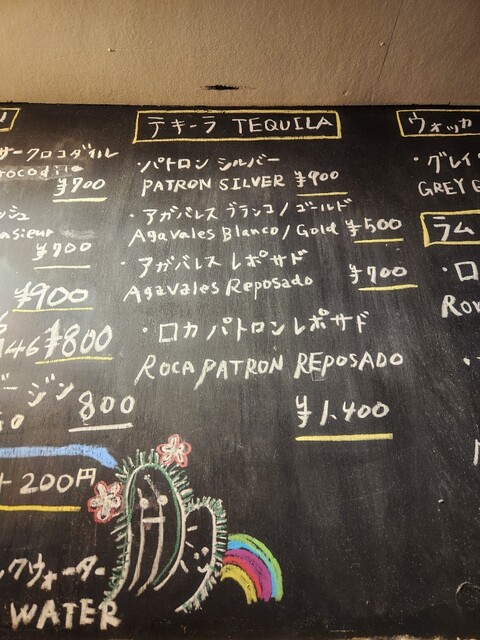 サークロコダイル
rocodile
¥700
ッシュ
asieur
¥700
¥900
146 ¥800
ージン
800
+ 200円
ックウォーター
WATER
テキーラ TEQUILA
・パトロン シルバー
PATRON SILVER ¥900
・アガバレス ブランコ/ゴールド
Agavales Blanco/Gold ¥500
・アガバレス レポサド
Agavales Reposado ¥700
・ロカ パトロン レポサド
ROCA PATRON REPOSADO
¥1,400
ウォッカ
・グレイ
GREY G
ラム
・ロ
Ro